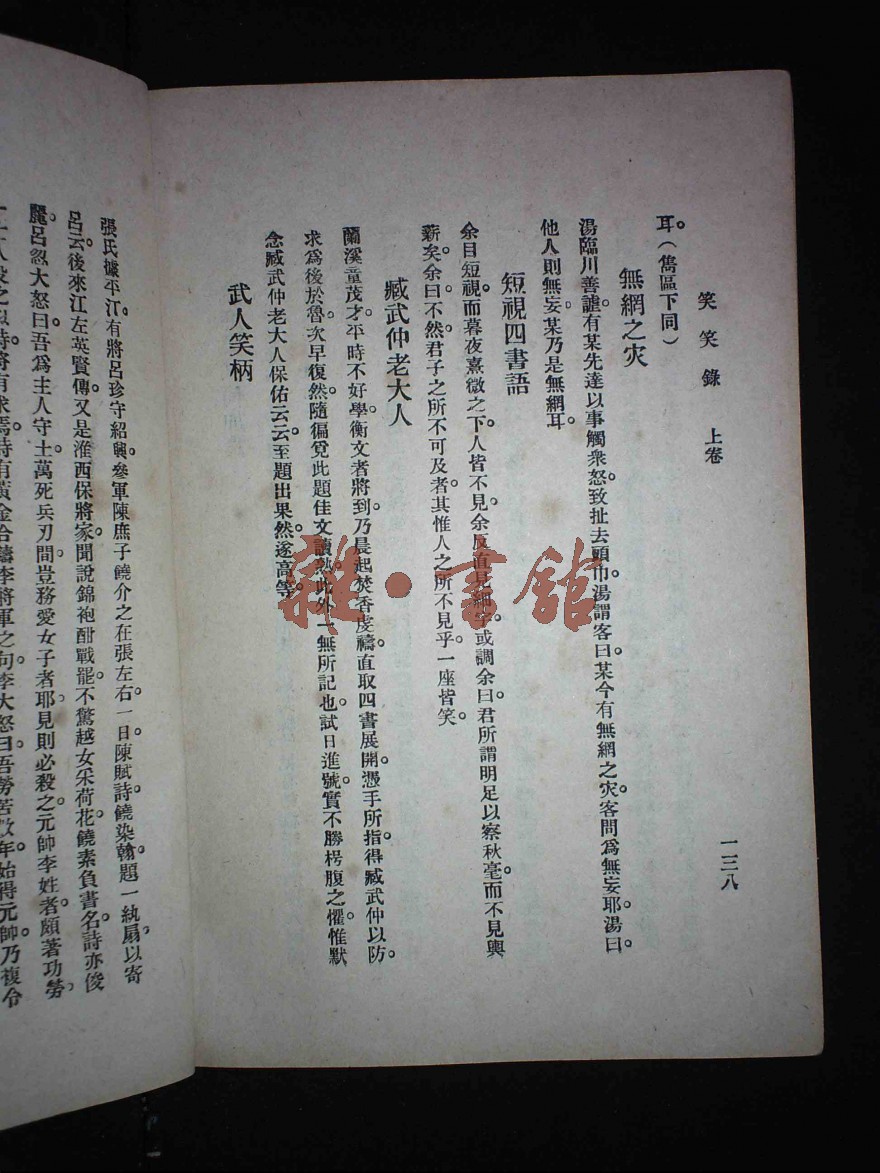 笑笑錄　上卷
一三八
耳。(雋區下同)
無網之災
湯臨川善謔有某先達以事觸衆怒。致扯去頭巾湯謂客曰某今有無網之災。客問爲無妄耶。湯曰。
他人則無妄。某乃是無網耳。
短視四書語
余目短視。而暮夜熹微之下。人皆不見余反直見細字。或調余曰。君所謂明足以察秋毫。而不見輿
薪矣。余曰。不然君子之所不可及者。其惟人之所不見乎。一座皆笑。
臧武仲老大人
蘭溪童茂才。平時不好學。衡文者將到。乃晨起焚香虔禱。直取四書展開。憑手所指。得臧武仲以防。
求爲後於魯。次早復然。隨徧覓此題佳文讀熟。此外一無所記也。試日進號。實不勝枵腹之懼。惟默
念臧武仲老大人保佑云云。至題出果然。遂高等。
武人笑柄
張氏據平江。有將呂珍守紹興。參軍陳庶子饒介之在張左右。一日陳賦詩。饒染翰題一紈扇。以寄
呂云。後來江左英賢傳。又是淮西保將家。聞說錦袍酣戰罷。不驚越女采荷花。饒素負書名。詩亦俊
麗。呂忽大怒曰。吾爲主人守土。萬死兵刃間。豈務愛女子者耶。見則必殺之。元帥李姓者。頗著功勞。
詩將有求焉。詩有黃金合鑄李將軍之句。李大怒曰。吾勞苦數年。始得元帥。乃複令
雜·書館